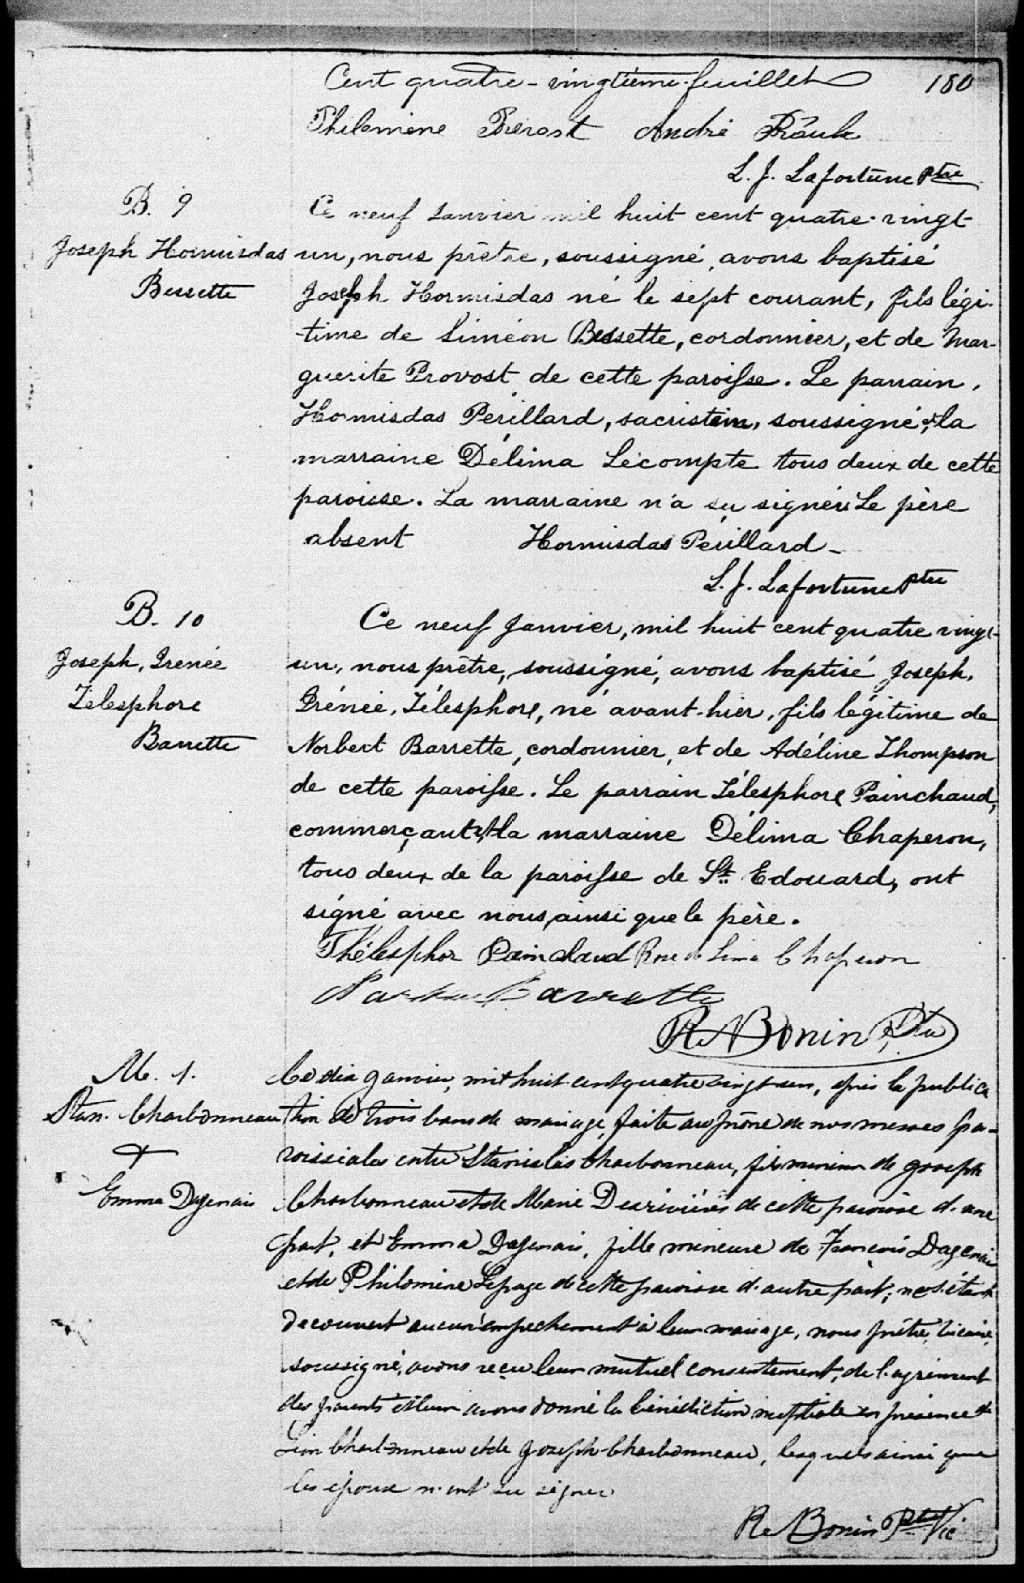 Cent quatre-vingtième feuillet 180
Philomène Prevost André
L. J. Lafortune Ptre
B. 9
Joseph Hormisdas
Bessette
Ce neuf Janvier mil huit cent quatre-vingt
un, nous prêtre, soussigné, avons baptisé
Joseph Hormisdas né le sept courant, fils légi-
time de Siméon Bessette, cordonnier, et de Mar-
guerite Provost de cette paroisse. Le parrain,
Hormisdas Périllard, sacristain, soussigné, et la
marraine Délima Lécompte tous deux de cette
paroisse. La marraine n'a su signer. Le père
absent Hormisdas Périllard
L. J. Lafortune Ptre
B. 10
Joseph, Irenée
Télesphore
Barrette
Ce neuf Janvier, mil huit cent quatre vingt-
un, nous prêtre, soussigné, avons baptisé Joseph,
Irénée, Télesphore, né avant-hier, fils légitime de
Norbert Barrette, cordonnier, et de Adéline Thompson
de cette paroisse. Le parrain Télesphore Painchaud,
commerçant, et la marraine Délima Chaperon,
tous deux de la paroisse de St. Edouard, ont
signé avec nous, ainsi que le père.
Thélesphor Painchaud Rose de Lima Chaperon
Barrette
R. Bonin Ptre
M. 1.
Stan. Charbonneau
+
Emma Dagenais
Ce dix Janvier, mil huit cent quatre vingt un, après la publica
tion de trois bans de mariage, faite au prône de nos messes pa-
roissiales entre Stanislas Charbonneau, fils mineur de Joseph
Charbonneau et de Marie Desrivières de cette paroisse d'une
part, et Emma Dagenais, fille mineure de François Dagenais
et de Philomène Lepage de cette paroisse d'autre part; ne s'étant
découvert aucun empêchement à leur mariage, nous prêtre, vicaire,
soussigné, avons reçu leur mutuel consentement, de l'agrément
des parents et leur avons donné la bénédiction nuptiale en présence de
Léon Charbonneau et de Joseph Charbonneau, lesquels ainsi que
les époux n'ont su signer
R. Bonin Ptre Vic